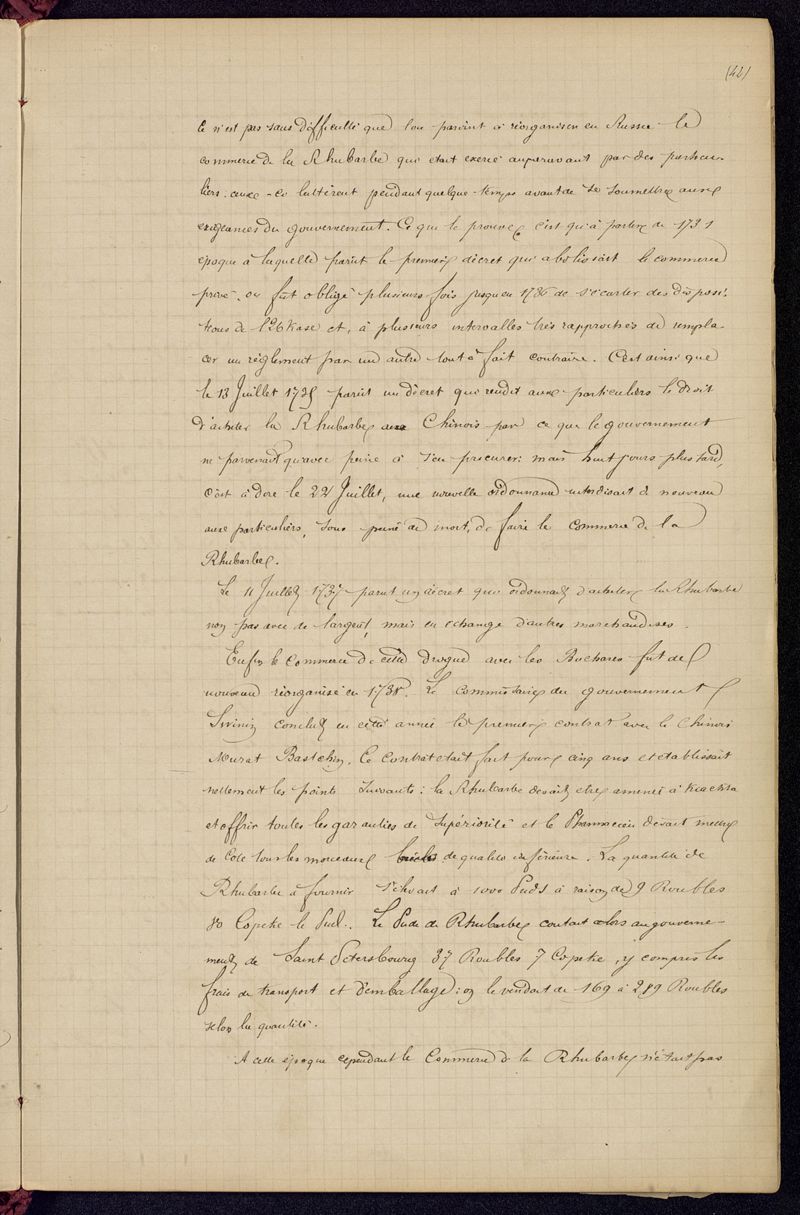 (42)
Ce n'est pas sans difficulté que l'on parvint à réorganiser en Russie le
commerce de la Rhubarbe qui était exercé auparavant par des particu-
liers. ceux-ci luttèrent pendant quelque temps avant de se soumettre aux
exigeances du gouvernement. Ce qui le prouve c'est qu'à partir de 1731
époque à laquelle parût le premier décret qui abolissait le commerce
privé. on fût obligé plusieurs fois jusqu'en 1736 de s'écarter des disposi-
tions de l'Ukase et, à plusieurs intervalles très rapprochés de rempla-
cer un règlement par un autre tout à fait contraire. C'est ainsi que
le 13 Juillet 1735 parût un décret qui rendit aux particuliers le droit
d'acheter la Rhubarbe aux Chinois par ce que le gouvernement
ne parvenait qu'avec peine à s'en procurer: mais huit jours plus tard,
c'est à dire le 22 Juillet, une nouvelle ordonnance interdisait de nouveau
aux particuliers, sous peine de mort, de faire le commerce de la
Rhubarbe.
Le 11 Juillet 1737 parut un décret qui ordonnait d'acheter la Rhubarbe
non pas avec de l'argent, mais en échange d'autres marchandises.
Enfin le commerce de cette drogue avec les Buchares fut de
nouveau réorganisé en 1738. Le commissaire du gouvernement
Swinin conclut en cette année le premier contrat avec le Chinois
Murat Bastchin. Ce contrat était fait pour cinq ans et établissait
nettement les points suivants: la Rhubarbe devait être amenée à Kiachta
et offrir toutes les garanties de supériorité et le Pharmacien devait mettre
de côté tous les morceaux de qualité inférieure. La quantité de
Rhubarbe à fournir s'élevait à 1000 Puds à raison de 9 Roubles
80 Copeke le Pud. Le Pude de Rhubarbe coutait alors au gouverne-
ment de Saint Petersbourg 37 Roubles 7 Copeke, y compris les
frais de transport et d'emballage: on le vendait de 169 à 289 Roubles
selon la quantité.
A cette époque cependant le Commerce de la Rhubarbe n'était pas